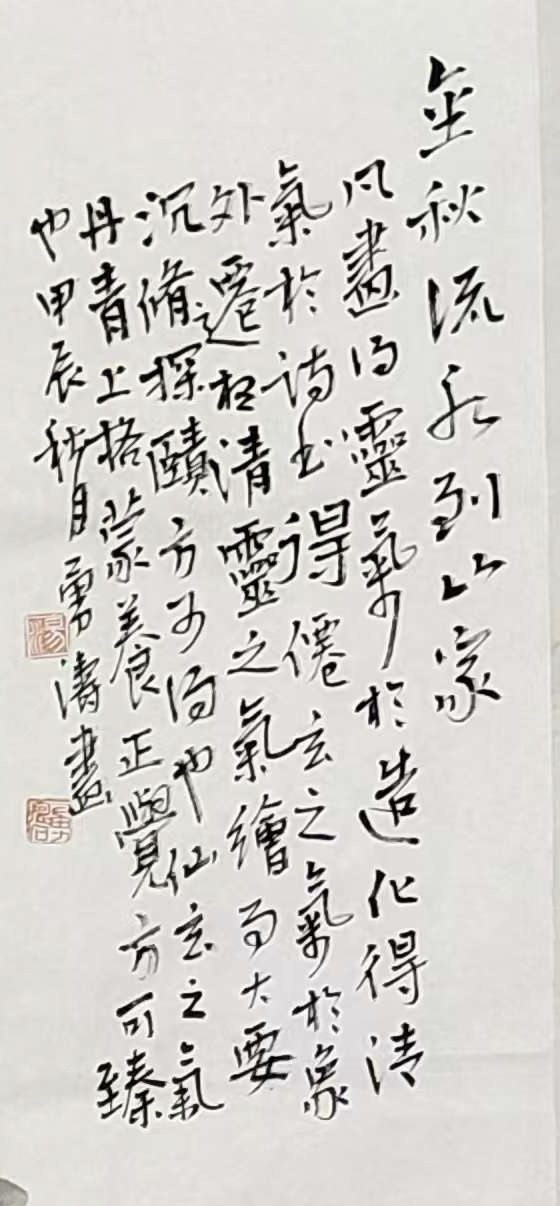 金秋流水到山家
凡畫得靈氣於造化得清
氣於詩書得僊玄之氣於象
外遷想清靈之氣繪事大要
沉脩探賾方可得也仙玄之氣
丹青上格蒙養正覺方可臻
也甲辰秋月勇濤畫